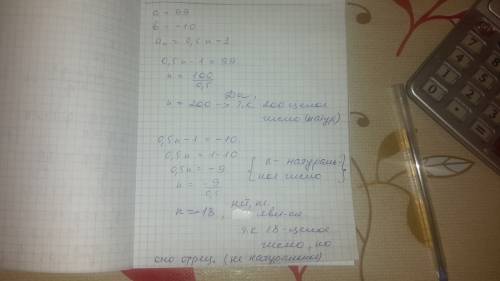 a = 99
b = -10
aₙ = 0,5n-1
0,5n-1 = 99
n = 100/0,5
Да,
n = 200 -> т.к 200 целое
число (натур)
0,5n-1 = -10
0,5n = 1-10
0,5n = -9
n = -9/0,5
{ n - натураль-
ное число }
n = -18, нет, не
явл-ся
т.к 18-целое
число, но
оно отриц. (не натуральное)